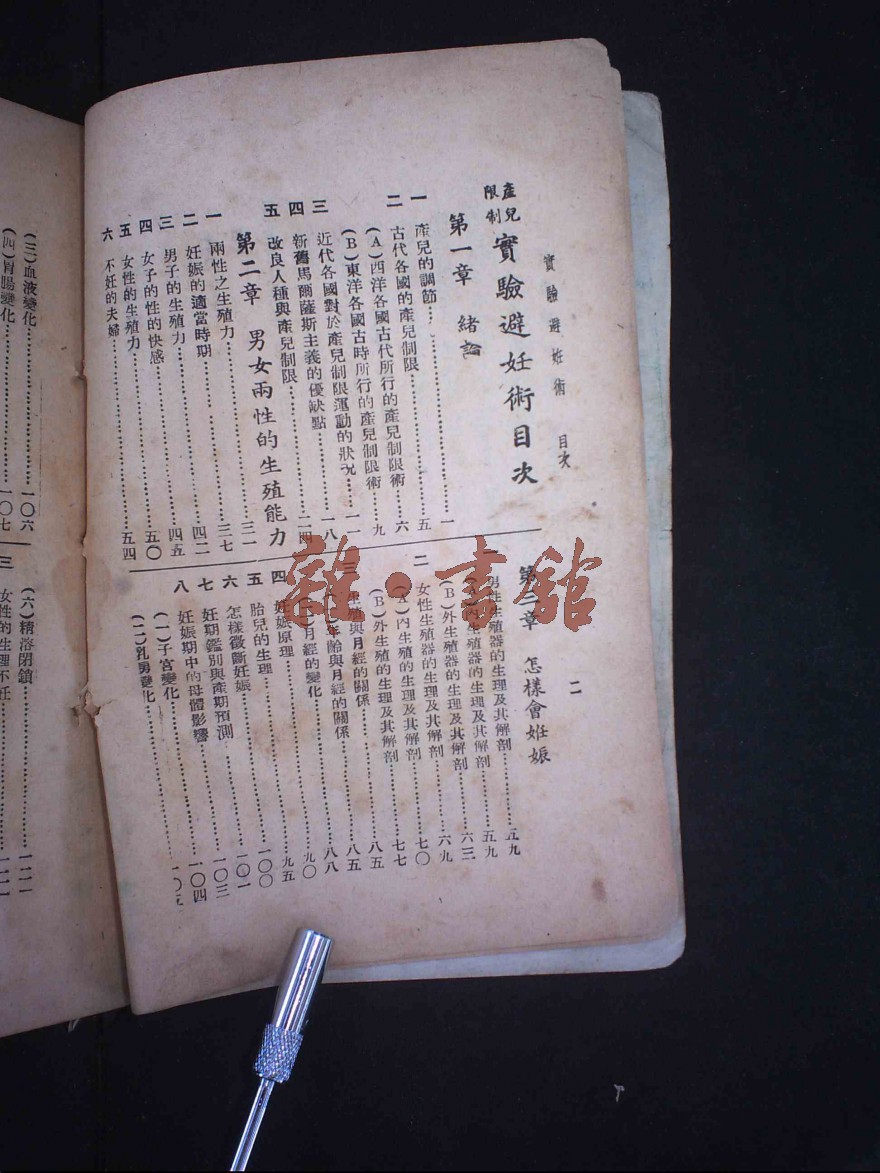 實驗避妊術 目次
二
產兒
限制
實驗避妊術目次
第一章 緒論
一 產兒的調節……一
二 古代各國的產兒制限……五
(A)西洋各國古代所行的產兒制限術……六
(B)東洋各國古時所行的產兒制限術……九
三 近代各國對於產兒制限運動的狀况……一一
四 新舊馬爾薩斯主義的優缺點……一八
五 改良人種與產兒制限……二四
第二章 男女兩性的生殖能力
一 兩性之生殖力……三二
二 妊娠的適當時期……三七
三 男子的生殖力……四二
四 女子的性的快感……四五
五 女性的生殖力……五〇
六 不妊的夫婦……五四
第三章 怎樣會妊娠
一 男性生殖器的生理及其解剖……五九
(A)內生殖器的生理及其解剖……五九
(B)外生殖器的生理及其解剖……六三
二 女性生殖器的生理及其解剖……六九
(A)內生殖的生理及其解剖……七〇
(B)外生殖的生理及其解剖……七七
三 生殖與月經的關係……八五
年齡與月經的關係……八五
月經的變化……八八
四 妊娠原理……九〇
五 胎兒的生理……九五
六 怎樣徵斷妊娠……一〇〇
七 妊期鑑別與產期預測……一〇一
八 妊娠期中的母體影響……一〇三
(一)子宮變化……一〇四
(二)乳房變化……一〇五
(三)血液變化……一〇六
(四)胃腸變化……一〇七
(六)精溶閉鎖……一二一
三 女性的生理不妊
雜·書館